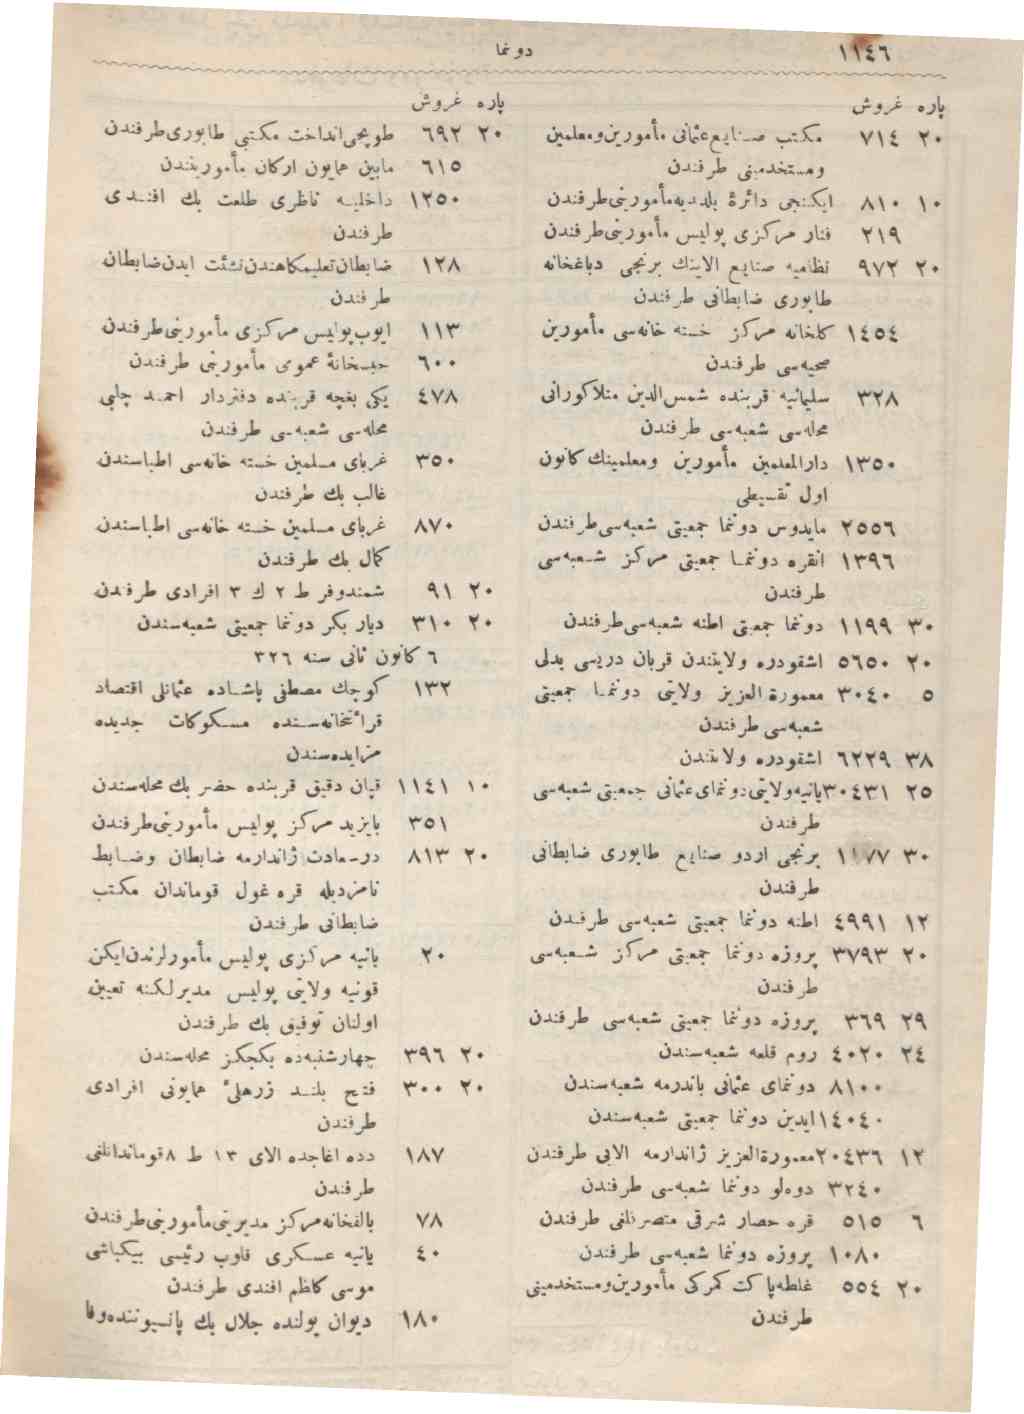 ١١٤٦
دونما
پاره غروش
٢٠ ٧١٤ مكتب صنايع عثمانی مأمورين ومعلمين
ومستخدمينی طرفندن
١٠ ٨١٠ ايكنجی دائرۀ بلديه مأمورينی طرفندن
٢١٩ فنار مركزی پوليس مأمورينی طرفندن
٢٠ ٩٧٢ نظاميه صنايع الاينك برنجی دباغخانه
طابوری ضابطانی طرفندن
١٤٥٤ كلخانه مركز خسته خانه‌سی مأمورين
صحيه‌سی طرفندن
٣٢٨ سليمانيه قربنده شمس‌الدين منلاكورانی
محله‌سی شعبه‌سی طرفندن
١٣٥٠ دارالمعلمين مأمورين ومعلمينك كانون
اول تقسيطی
٢٥٥٦ مايدوس دونما جمعيتی شعبه‌سی طرفندن
١٣٩٦ انقره دونما جمعيتی مركز شعبه‌سی
طرفندن
٣٠ ١١٩٩ دونما جمعيتی اطنه شعبه‌سی طرفندن
٢٠ ٥٦٥٠ اشقودره ولايتندن قربان دريسی بدلی
٥ ٣٠٤٠ معمورة العزيز ولايتی دونما جمعيتی
شعبه‌سی طرفندن
٣٨ ٦٢٢٩ اشقودره ولايتندن
٢٥ ٣٠٤٣١ يانيه ولايتی دونمای عثمانی جمعيتی شعبه‌سی
طرفندن
٣٠ ١١٧٧ برنجی اردو صنايع طابوری ضابطانی
طرفندن
١٢ ٤٩٩١ اطنه دونما جمعيتی شعبه‌سی طرفندن
٢٠ ٣٧٩٣ پروزه دونما جمعيتی مركز شعبه‌سی
طرفندن
٢٩ ٣٦٩ پروزه دونما جمعيتی شعبه‌سی طرفندن
٢٤ ٤٠٢٠ روم قلعه شعبه‌سندن
٨١٠٠ دونمای عثمانی باندرمه شعبه‌سندن
١٤٠٤٠ ايدين دونما جمعيتی شعبه‌سندن
١٢ ٢٠٤٣٦ معمورة العزيز ژاندارمه الايی طرفندن
٣٢٤٠ دوه‌لو دونما شعبه‌سی طرفندن
٦ ٥١٥ قره حصار شرقی متصرفلغی طرفندن
١٠٨٠ پروزه دونما شعبه‌سی طرفندن
٢٠ ٥٥٤ غلطه پاكت كمركی مأمورين ومستخدمينی
طرفندن
پاره غروش
٢٠ ٦٩٢ طوپجی انداخت مكتبی طابوری طرفندن
٦١٥ مابين همايون اركان مأموريندن
١٢٥٠ داخليه ناظری طلعت بك افندی
طرفندن
١٢٨ ضابطان تعليمكاهندن نشئت ايدن ضابطان
طرفندن
١١٣ ايوب پوليس مركزی مأمورينی طرفندن
٦٠٠ حبسخانۀ عمومی مأمورينی طرفندن
٤٧٨ يكی بغچه قربنده دفتردار احمد چلبی
محله‌سی شعبه‌سی طرفندن
٣٥٠ غربای مسلمين خسته خانه‌سی اطباسندن
غالب بك طرفندن
٨٧٠ غربای مسلمين خسته خانه‌سی اطباسندن
كمال بك طرفندن
٢٠ ٩١ شمندوفر ط ٢ ك ٣ افرادی طرفندن
٢٠ ٣١٠ ديار بكر دونما جمعيتی شعبه‌سندن
٦ كانون ثانی سنه ٣٢٦
١٣٢ كوجك مصطفی پاشاده عثمانلی اقتصاد
قرائتخانه‌سنده مسكوكات جديده
مزايده‌سندن
١٠ ١١٤١ قپان دقيق قربنده حضر بك محله‌سندن
٣٥١ بايزيد مركز پوليس مأمورينی طرفندن
٢٠ ٨١٣ درسعادت ژاندارمه ضابطان وضابط
نامزديله قره غول قوماندان مكتب
ضابطانی طرفندن
٢٠ يانيه مركزی پوليس مأمورلرندن ايكن
قونيه ولايتی پوليس مديرلكنه تعيين
اولنان توفيق بك طرفندن
٢٠ ٣٩٦ چهارشنبه‌ده بكجكز محله‌سندن
٢٠ ٣٠٠ فتح بلند زرهلیٔ همايونی افرادی
طرفندن
١٨٧ دده اغاجده الای ١٣ ط ٨ قوماندانلغی
طرفندن
٧٨ بالقخانه مركز مديريتی مأمورينی طرفندن
٤٠ يانيه عسكری قلوب رئيسی بيكباشی
موسی كاظم افندی طرفندن
١٨٠ ديوان يولنده جلال بك پانسيوننده وفا